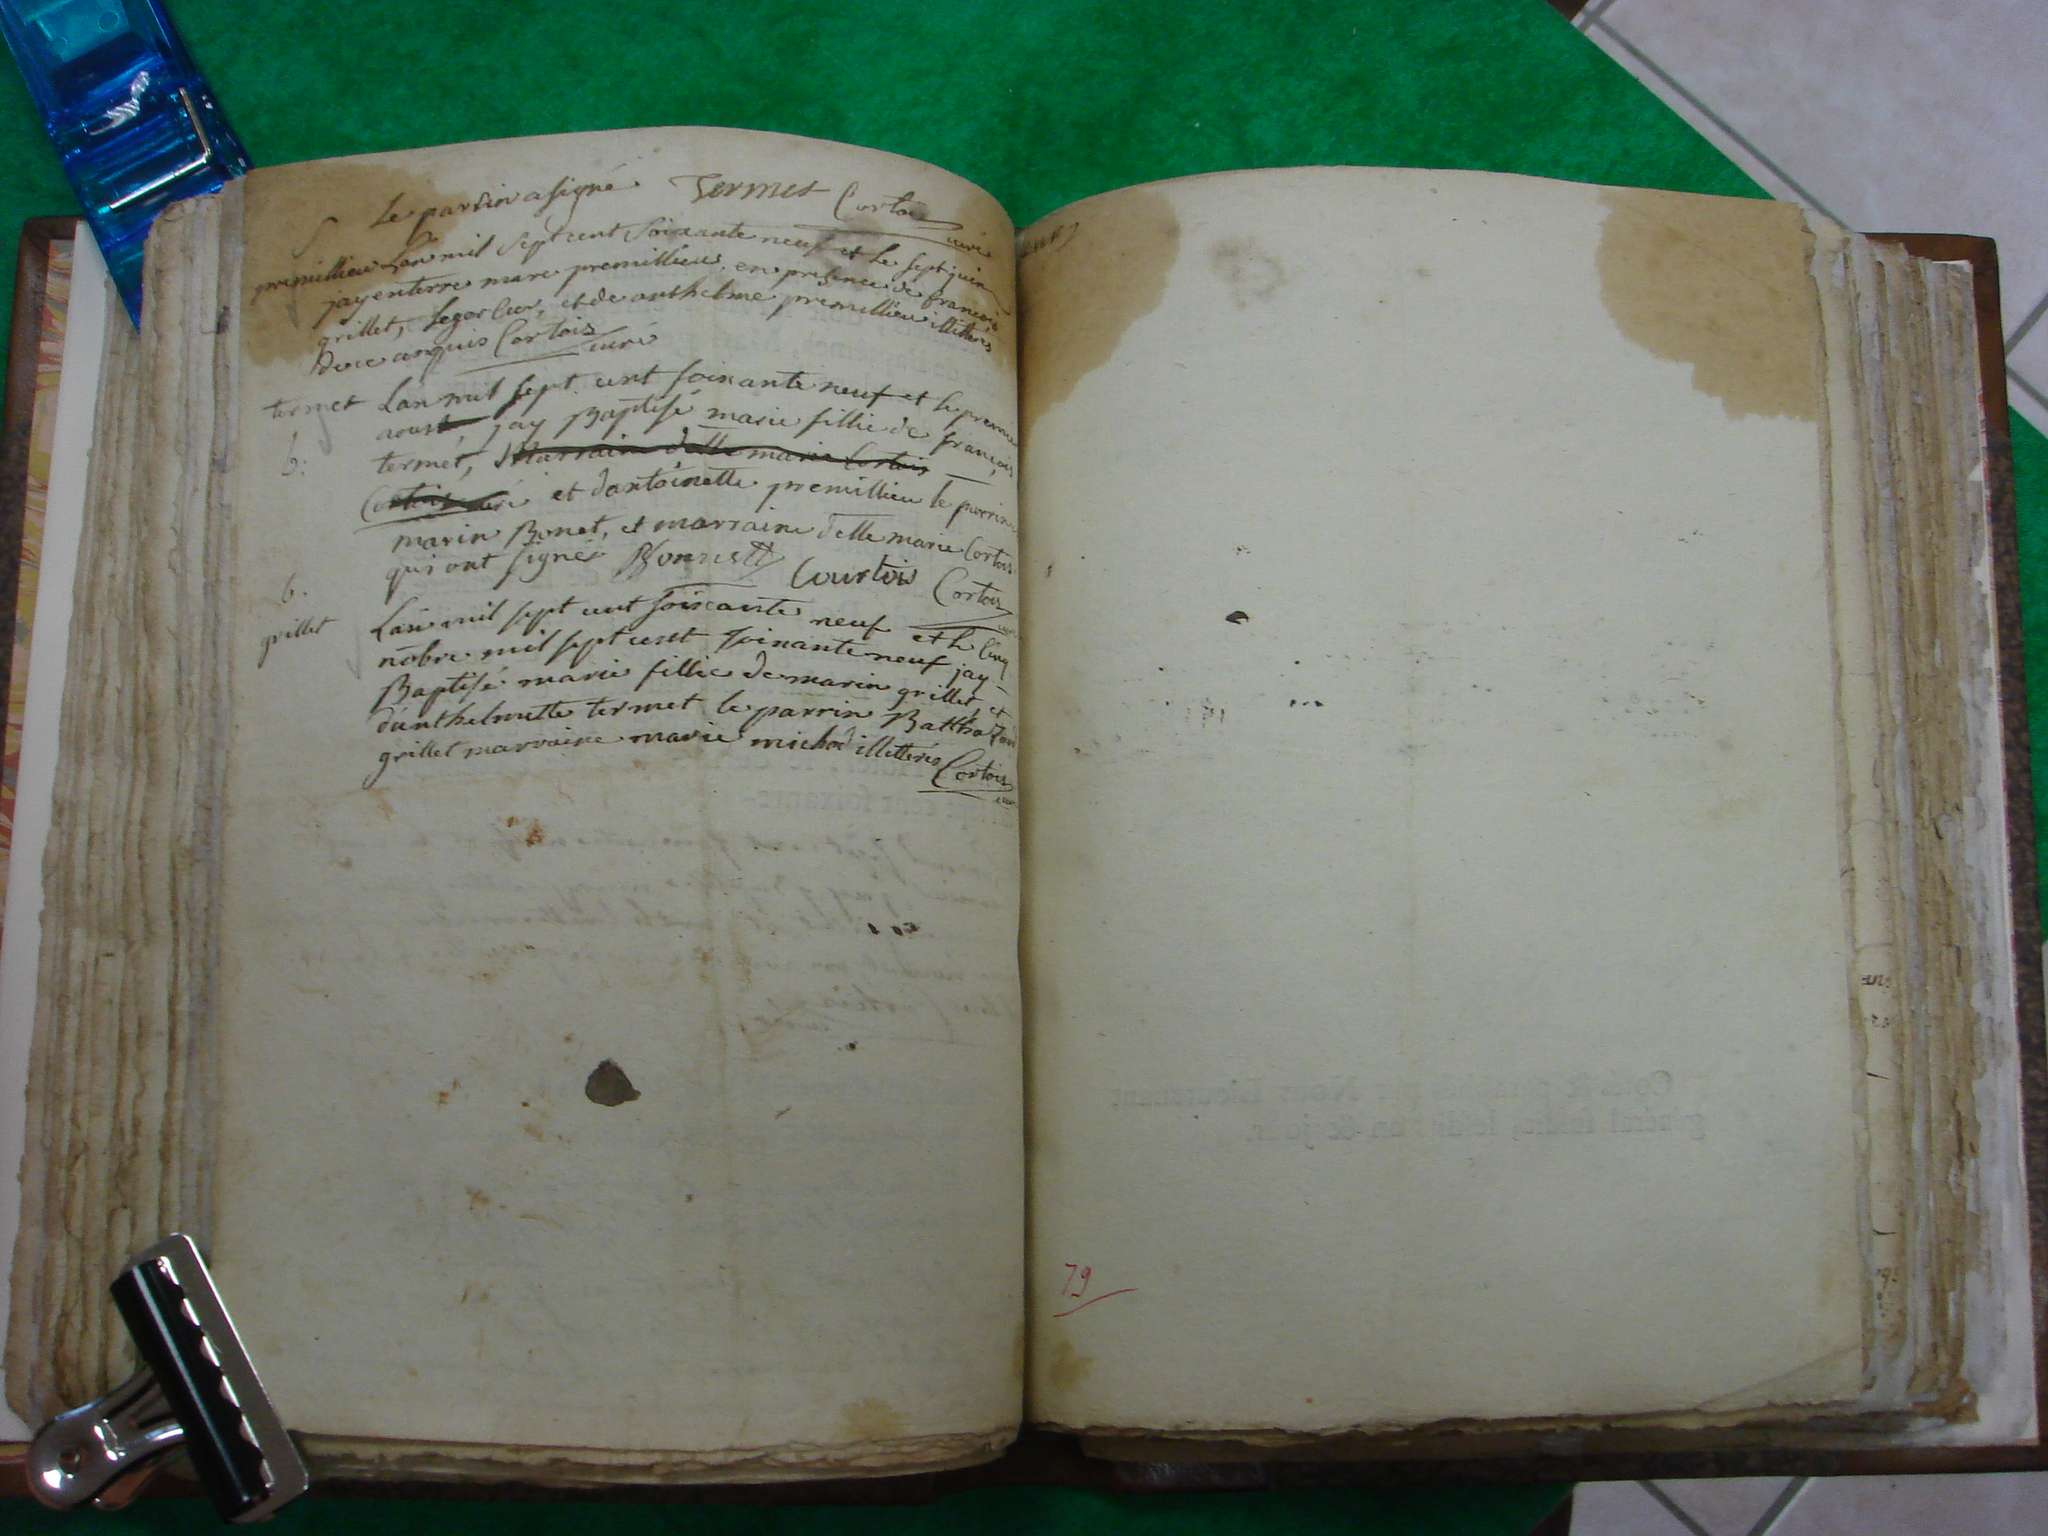 Le parrin a signé Termet Cortois curé
S
premillieu Lan mil sept cent soixante neuf et le sept juin
jay enterre marc premillieu en presence de francois
grillet, et de anthelme premillieu illitterés
De ce enquis Cortois curé
termet Lan mil sept cent soixante neuf et le premier
aoust jay Baptisé marie fillie de françois
b: termet, Marraine delle marie Cortois
Cortois curé et dantoinette premillieu le parrin
marin Bonet, et marraine delle marie Cortois
qui ont signés Bonnet Courtois Cortois
b.
grillet Lan mil sept cent soixante neuf et le cinq
nōbre mil sept cent soixante neuf jay
Baptisé marie fillie de marin grillet, et
danthelmette termet le parrin Balthazard
grillet marraine marie michod illitterés Cortois
79